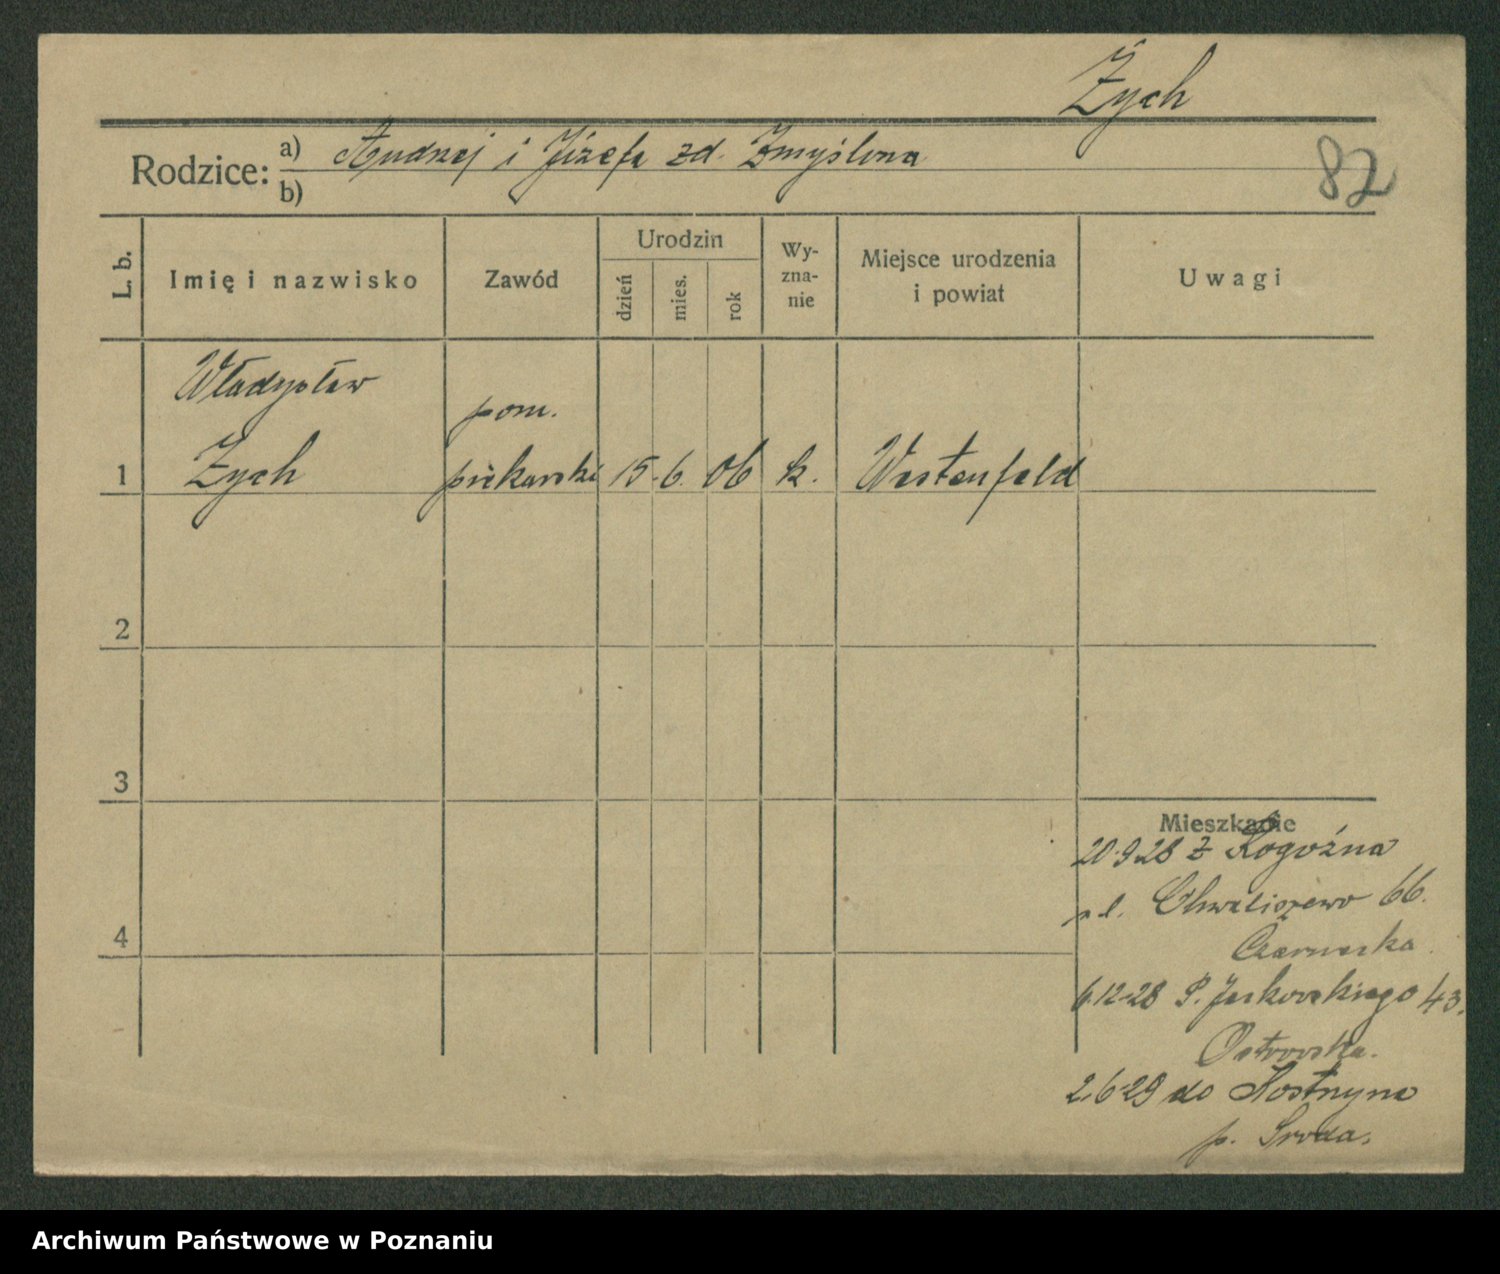 Zych
Rodzice: a) Andrzej i Józefa zd. Zmyślona
b)
82
L. b.
Imię i nazwisko
Zawód
Urodzin
dzień
mies.
rok
Wy-
zna-
nie
Miejsce urodzenia
i powiat
Uwagi
Władysław
pom.
1 Zych piekarski 15. 6. 06 k. Westenfeld
2
3
4
Mieszkanie
20.9.28 z Rogoźna
Chwaliszewo 66.
Czarnecka
6.12.28 P. Jackowskiego 43.
Ostrowska.
2.6.29 do Kostrzyna
p. Sroda.
Archiwum Państwowe w Poznaniu